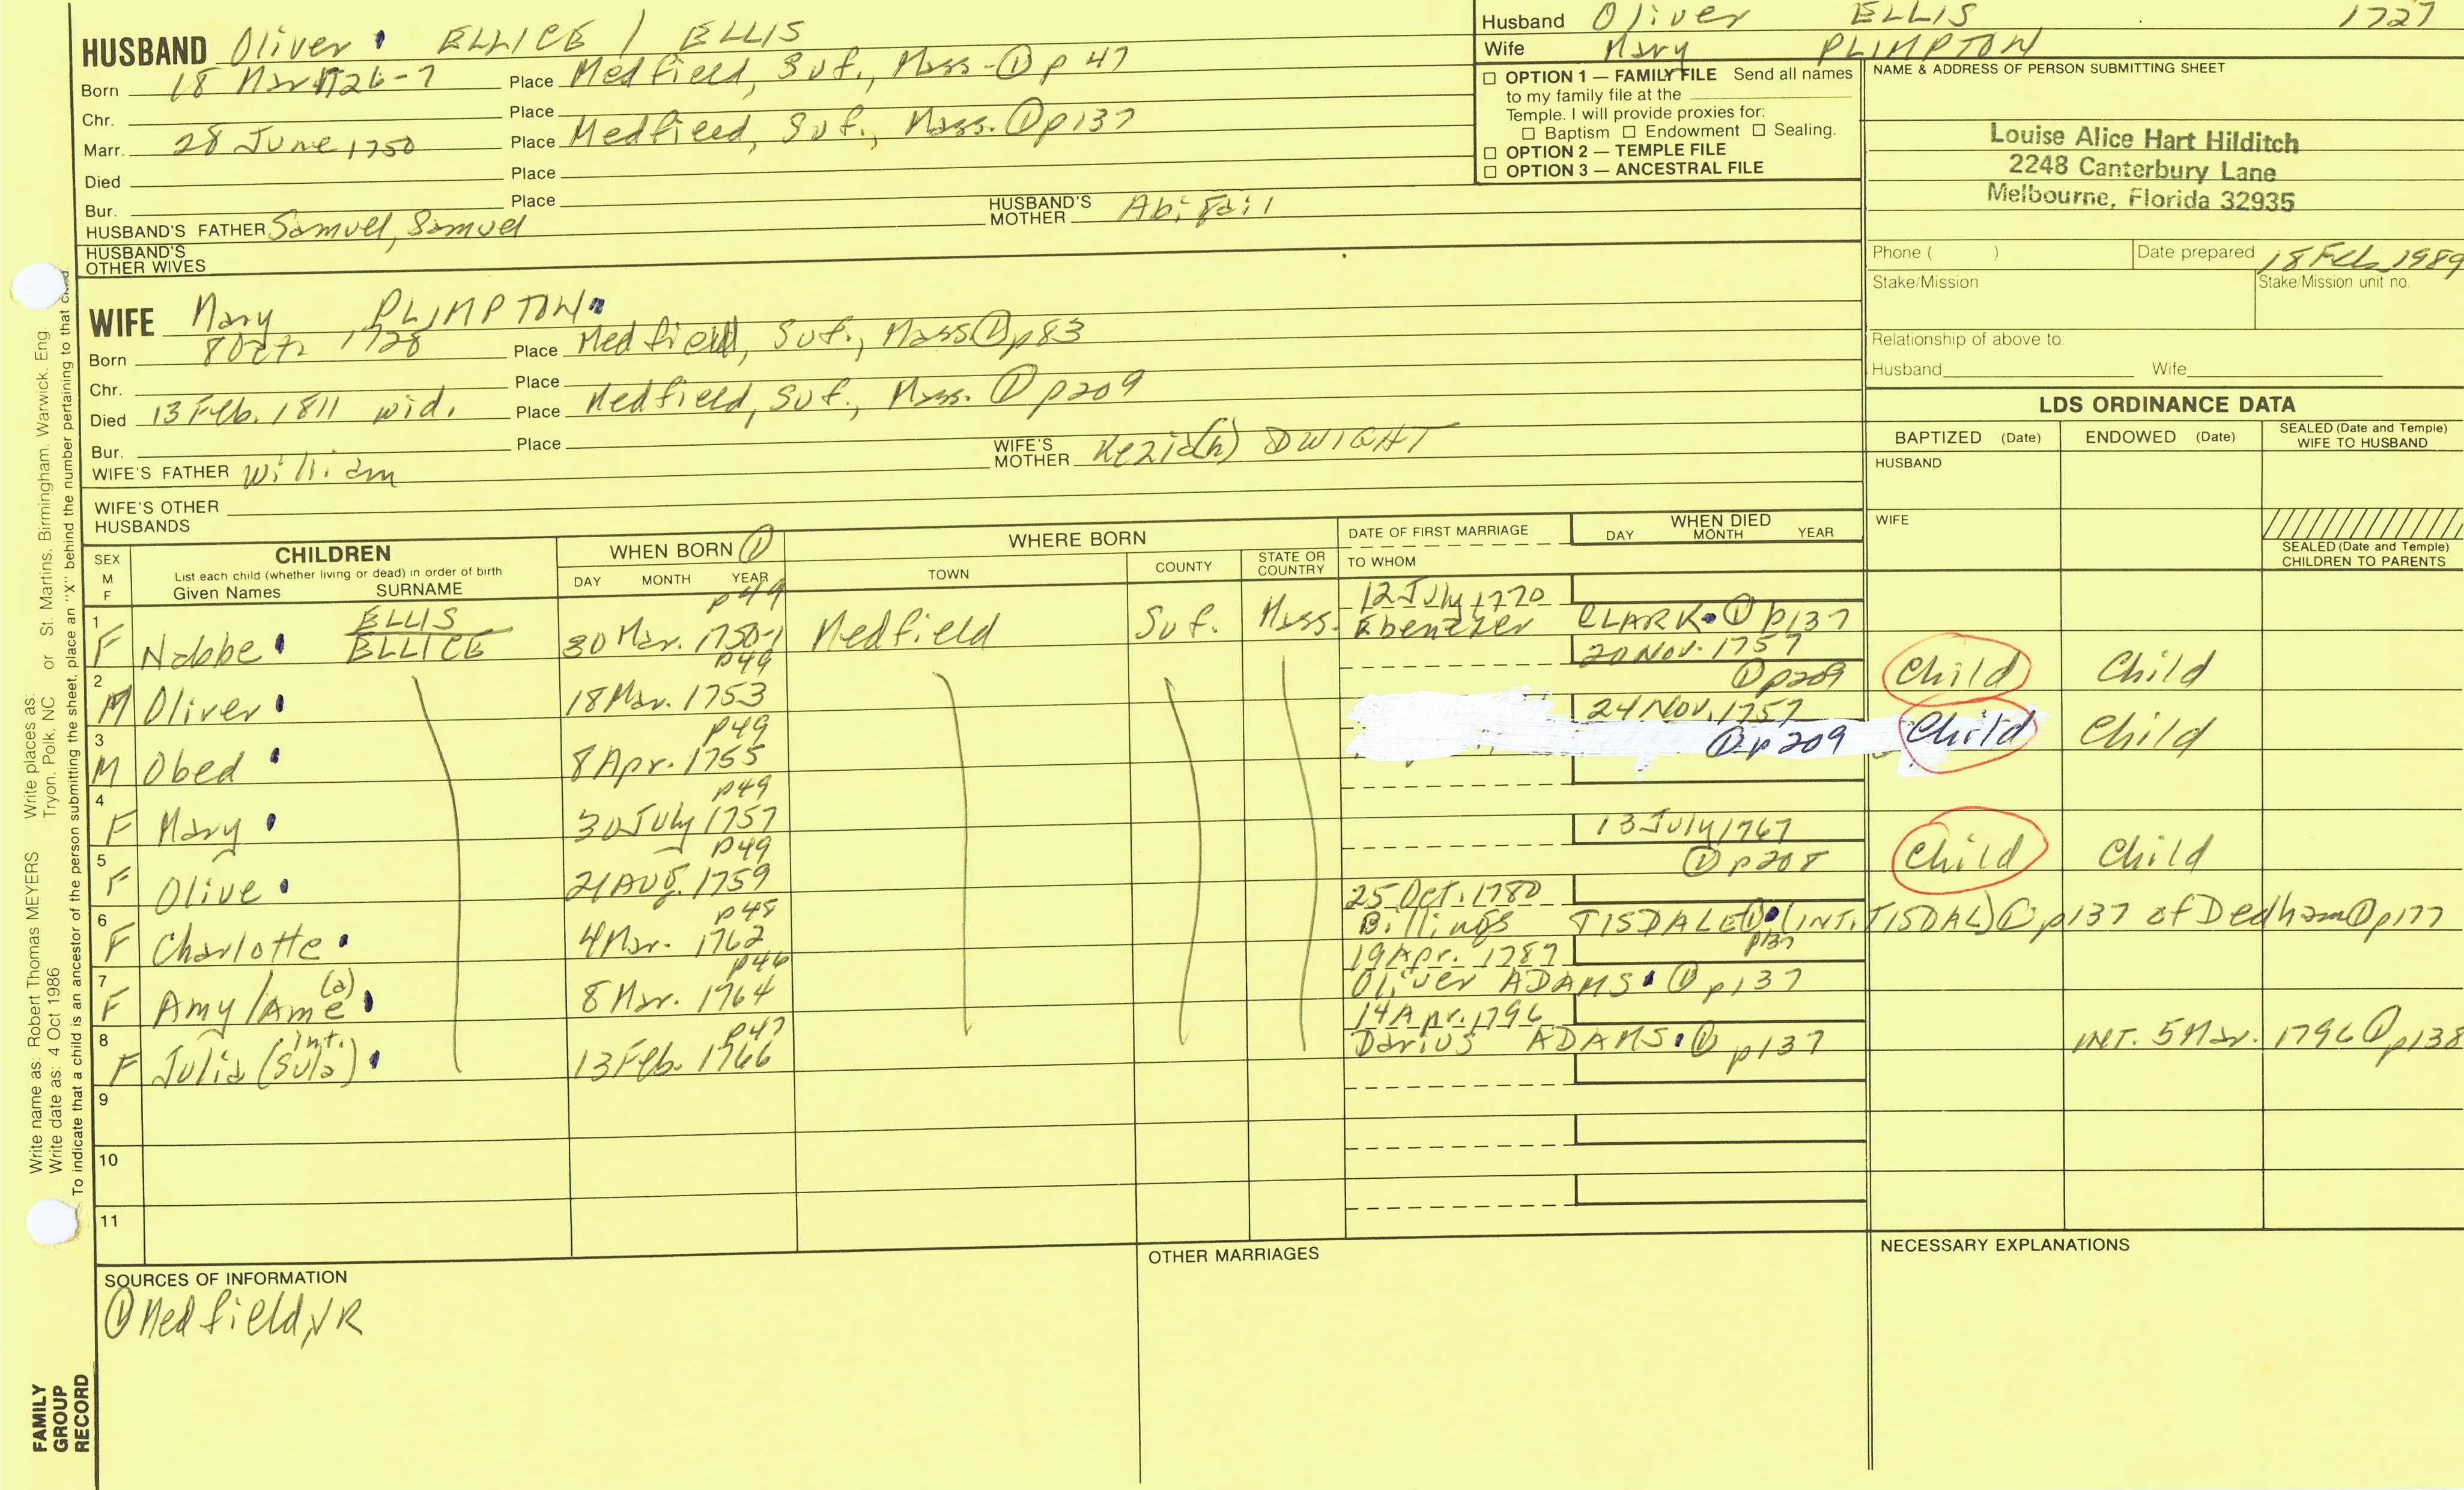 HUSBAND Oliver ELLICE / ELLIS
Born 18 Mar 1726-7 Place Medfield, Suf., Mass. ① p 47
Chr. Place
Marr. 28 June 1750 Place Medfield, Suf., Mass. ① p137
Died Place
Bur. Place
HUSBAND'S FATHER Samuel, Samuel HUSBAND'S MOTHER Abigail
HUSBAND'S OTHER WIVES
WIFE Mary PLIMPTON
Born 8 Oct. 1728 Place Medfield, Suf., Mass ① p83
Chr. Place
Died 13 Feb. 1811 wid. Place Medfield, Suf., Mass. ① p209
Bur. Place
WIFE'S FATHER William WIFE'S MOTHER Kezia(h) DWIGHT
WIFE'S OTHER HUSBANDS
Husband Oliver ELLIS 1727
Wife Mary PLIMPTON
☐ OPTION 1 — FAMILY FILE Send all names
to my family file at the
Temple. I will provide proxies for:
☐ Baptism ☐ Endowment ☐ Sealing.
☐ OPTION 2 — TEMPLE FILE
☐ OPTION 3 — ANCESTRAL FILE
NAME & ADDRESS OF PERSON SUBMITTING SHEET
Louise Alice Hart Hilditch
2248 Canterbury Lane
Melbourne, Florida 32935
Phone ( ) Date prepared 18 Feb 1989
Stake/Mission Stake/Mission unit no.
Relationship of above to:
Husband Wife
LDS ORDINANCE DATA
BAPTIZED (Date) ENDOWED (Date) SEALED (Date and Temple) WIFE TO HUSBAND
HUSBAND
WIFE
SEALED (Date and Temple) CHILDREN TO PARENTS
SEX M F
CHILDREN
List each child (whether living or dead) in order of birth
Given Names SURNAME
WHEN BORN ①
DAY MONTH YEAR
WHERE BORN
TOWN COUNTY STATE OR COUNTRY
DATE OF FIRST MARRIAGE
TO WHOM
WHEN DIED
DAY MONTH YEAR
1 F Nabbe ELLIS ELLICE p49 30 Mar. 1750-1 Medfield Suf. Mass. 12 July 1770 Ebenezer CLARK ① p137
2 M Oliver p49 18 Mar. 1753 20 Nov. 1757 ① p209 Child Child
3 M Obed p49 8 Apr. 1755 24 Nov. 1757 ① p209 Child Child
4 F Mary p49 30 July 1757
5 F Olive p49 21 Aug. 1759 13 July 1767 ① p208 Child Child
6 F Charlotte p48 4 Mar. 1762 25 Oct. 1780 Billings TISDALE ① p137 (INT. TISDAL) ① p137 of Dedham ① p177
7 F Amy/Ame (a) p46 8 Mar. 1764 19 Apr. 1787 Oliver ADAMS ① p137
8 F Julia (int. Sula) p47 13 Feb. 1766 14 Apr. 1796 Darius ADAMS ① p137 INT. 5 Mar. 1796 ① p138
9
10
11
SOURCES OF INFORMATION
① Medfield, VR
OTHER MARRIAGES
NECESSARY EXPLANATIONS
Write name as: Robert Thomas MEYERS Write places as: Tryon, Polk, NC or St. Martins, Birmingham, Warwick, Eng
Write date as: 4 Oct 1986
To indicate that a child is an ancestor of the person submitting the sheet, place an "X" behind the number pertaining to that child.
FAMILY
GROUP
RECORD